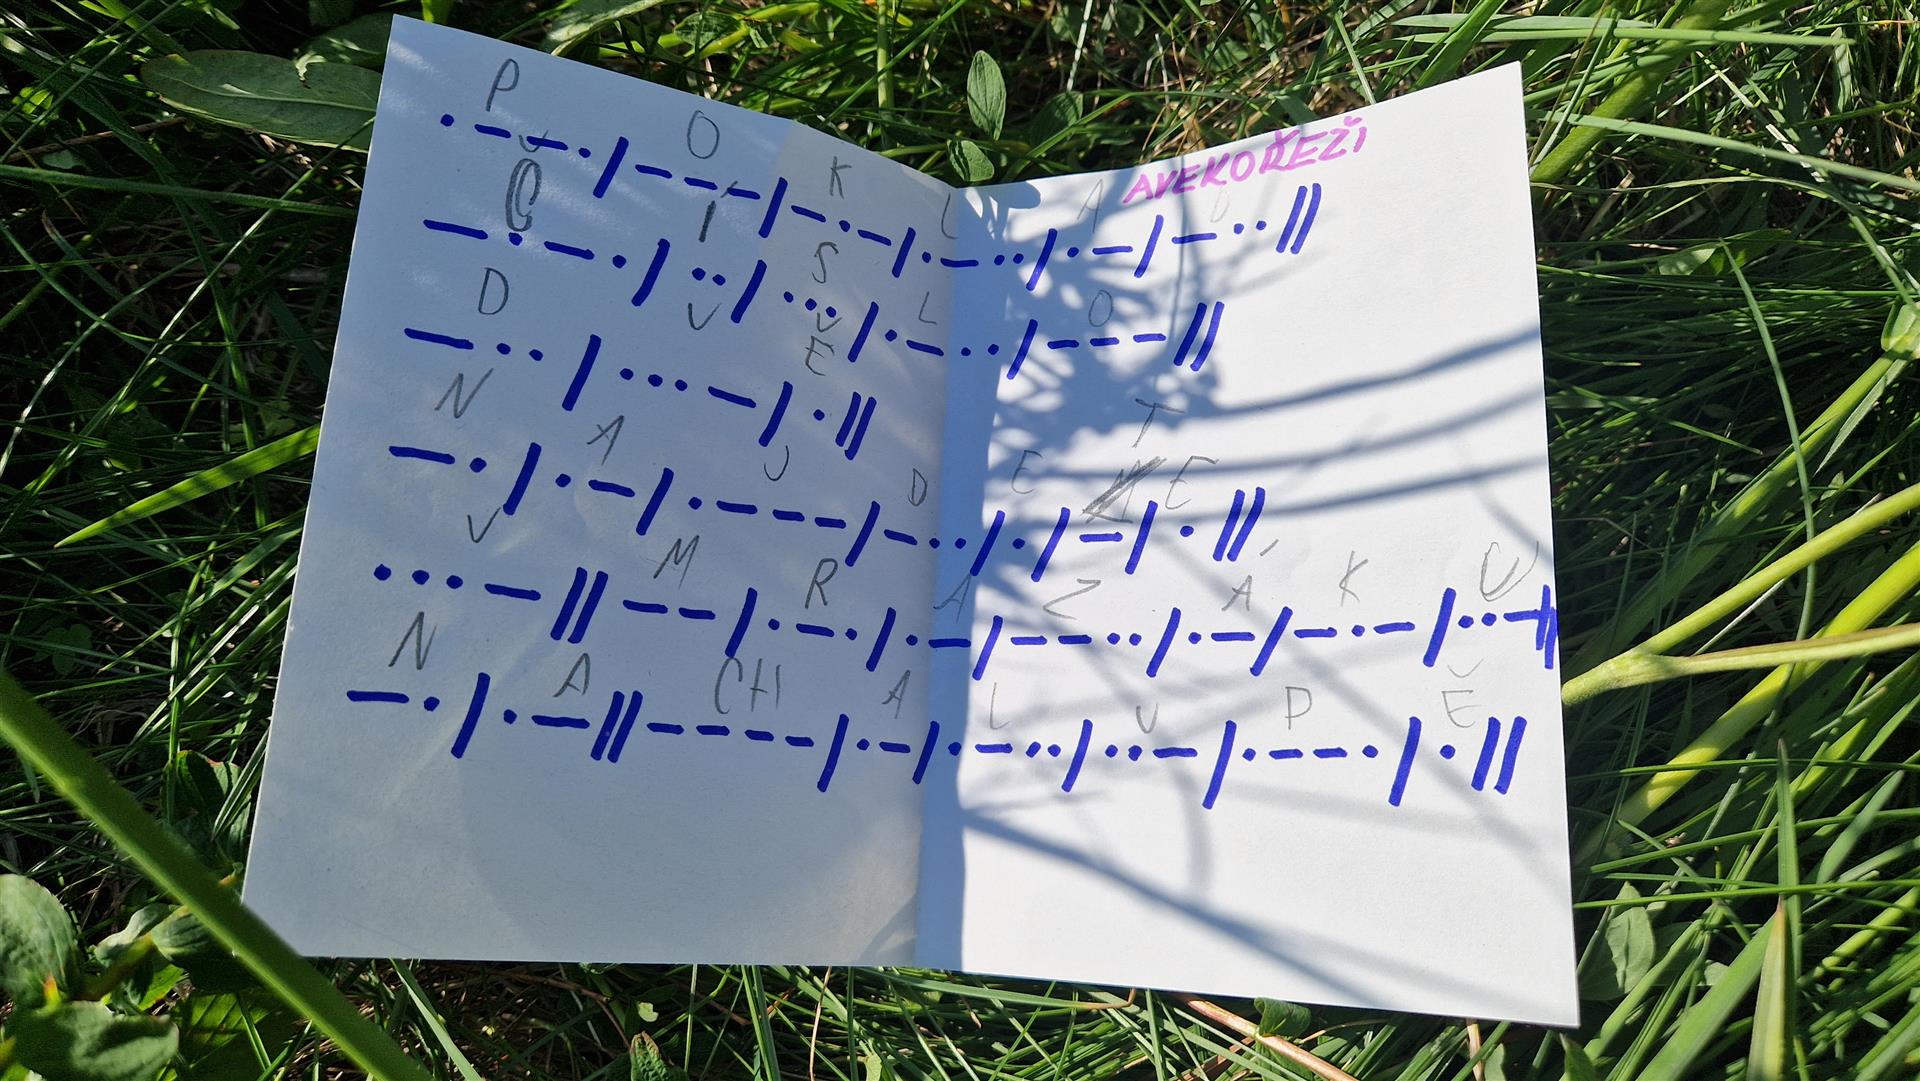 AVEKOŘEŽI
P O K L A D
.--./---/-.-/.-../.-/-..//
Č Í S L O
-.-./../.../.-../---//
D V Ě
-../...-/.//
N A J D E T E
-./.-/.---/-.././-/.//
V M R A Z Á K U
...-//--/.-./.-/--../.-/-.-/..-//
N A CH A L U P Ě
-./.-//----/.-/.-../..-/.--././/